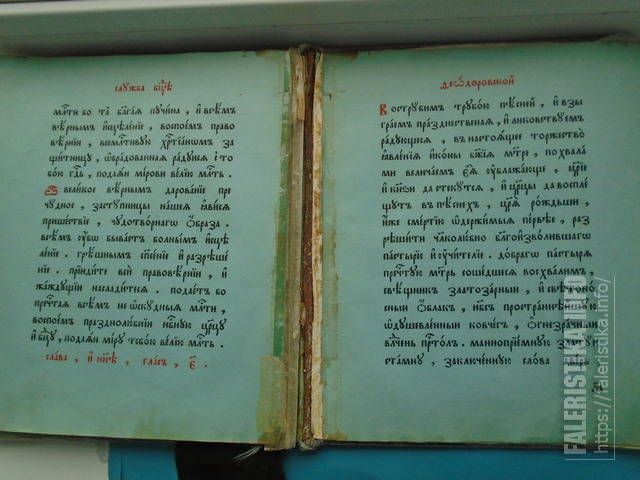 слꙋжба бцⷣѣ
мл҃ти бо та̀ блага́ѧ пꙋчи́на , и҆ всѣ́мъ
вѣ҆рнымъ и҆сцѣле́нїе , воспое́мъ право
вѣ́рнїи , хрⷭ҇тїа́номъ за
щи́тницꙋ , ѡ҆бра́дованнаѧ ра́дꙋйсѧ с̾то
бо́ю гдⷭ҇ь , пода́ѧй мі́рови ве́лїю мл҃ть .
вели́кое вѣ҆рнымъ дарова́нїе пре
чꙋ́дное , застꙋ́пницы на́шеѧ ꙗ҆ви́сѧ
прише́ствїе , чꙋдотво́рнагѡ ѡ҆́браза .
всѣ́мъ ᲂу҆́бо быва́етъ больны́мъ и҆сцѣ
ле́нїе . грѣ́шнымъ сп҃се́нїе и҆ разрѣше́
нїе . прїиди́те всѝ правовѣ́рнїи , и҆
жа́ждꙋщїи наслади́тесѧ . пода́етъ бо
пречⷭ҇таѧ всѣ́мъ не ѡ҆скꙋ́дныѧ мл҃ти ,
воспое́мъ празднолю́бнїи нбⷭ҇нꙋю цр҃цꙋ
и҆ бцⷣꙋ , пода́ѧй мі́рꙋ тобо́ю ве́лїю мл҃ть .
сла́ва , и҆ ны́нѣ , гла́съ , є҃ .
ѳеѡ́доровской
Вострꙋ́бимъ трꙋбо́ю пѣ́сней , и҆ взы
гра́емъ пра́зднественаѧ , и҆ ликовствꙋ́емъ
ра́дꙋющесѧ , въ настоѧ́щее торжество̀
ꙗ҆вле́нїѧ и҆ко́ны бж҃їѧ мт҃ре , похвала́
ми велича́емъ є҆ѧ̀ ᲂу҆блажа́юще , цр҃їе
и҆ кн҃зи да стекꙋ́тсѧ , и҆ цр҃цы да воспле́
щꙋтъ въ пѣ́снехъ , цр҃ѧ̀ ро́ждьшꙋ ,
и҆́же сме́ртїю ѡ҆держи́мыѧ пе́рвѣе , раз
рѣши́ти чл҃колю́бно бл҃гои҆зво́лившагѡ
па́стырїе и҆ ᲂу҆чи́телїе . до́брагѡ па́стырѧ
пречⷭ҇тꙋю мт҃рь соше́дшесѧ восхва́лимъ ,
свѣ́щникъ златоза́рный , и҆ свѣтоно́
сный ѡ҆́блакъ , нб҃съ простра́ннѣйшꙋю
ѡ҆дꙋшевле́нный ковче́гъ , ѻ҆гнезра́чный
влⷣчень прⷭ҇то́лъ . маннопрїе́мнꙋю златꙋ́ю
ста́мнꙋ , заключе́ннꙋю сло́ва две́рь
FALERISTIKA.INFO
https://faleristika.info/